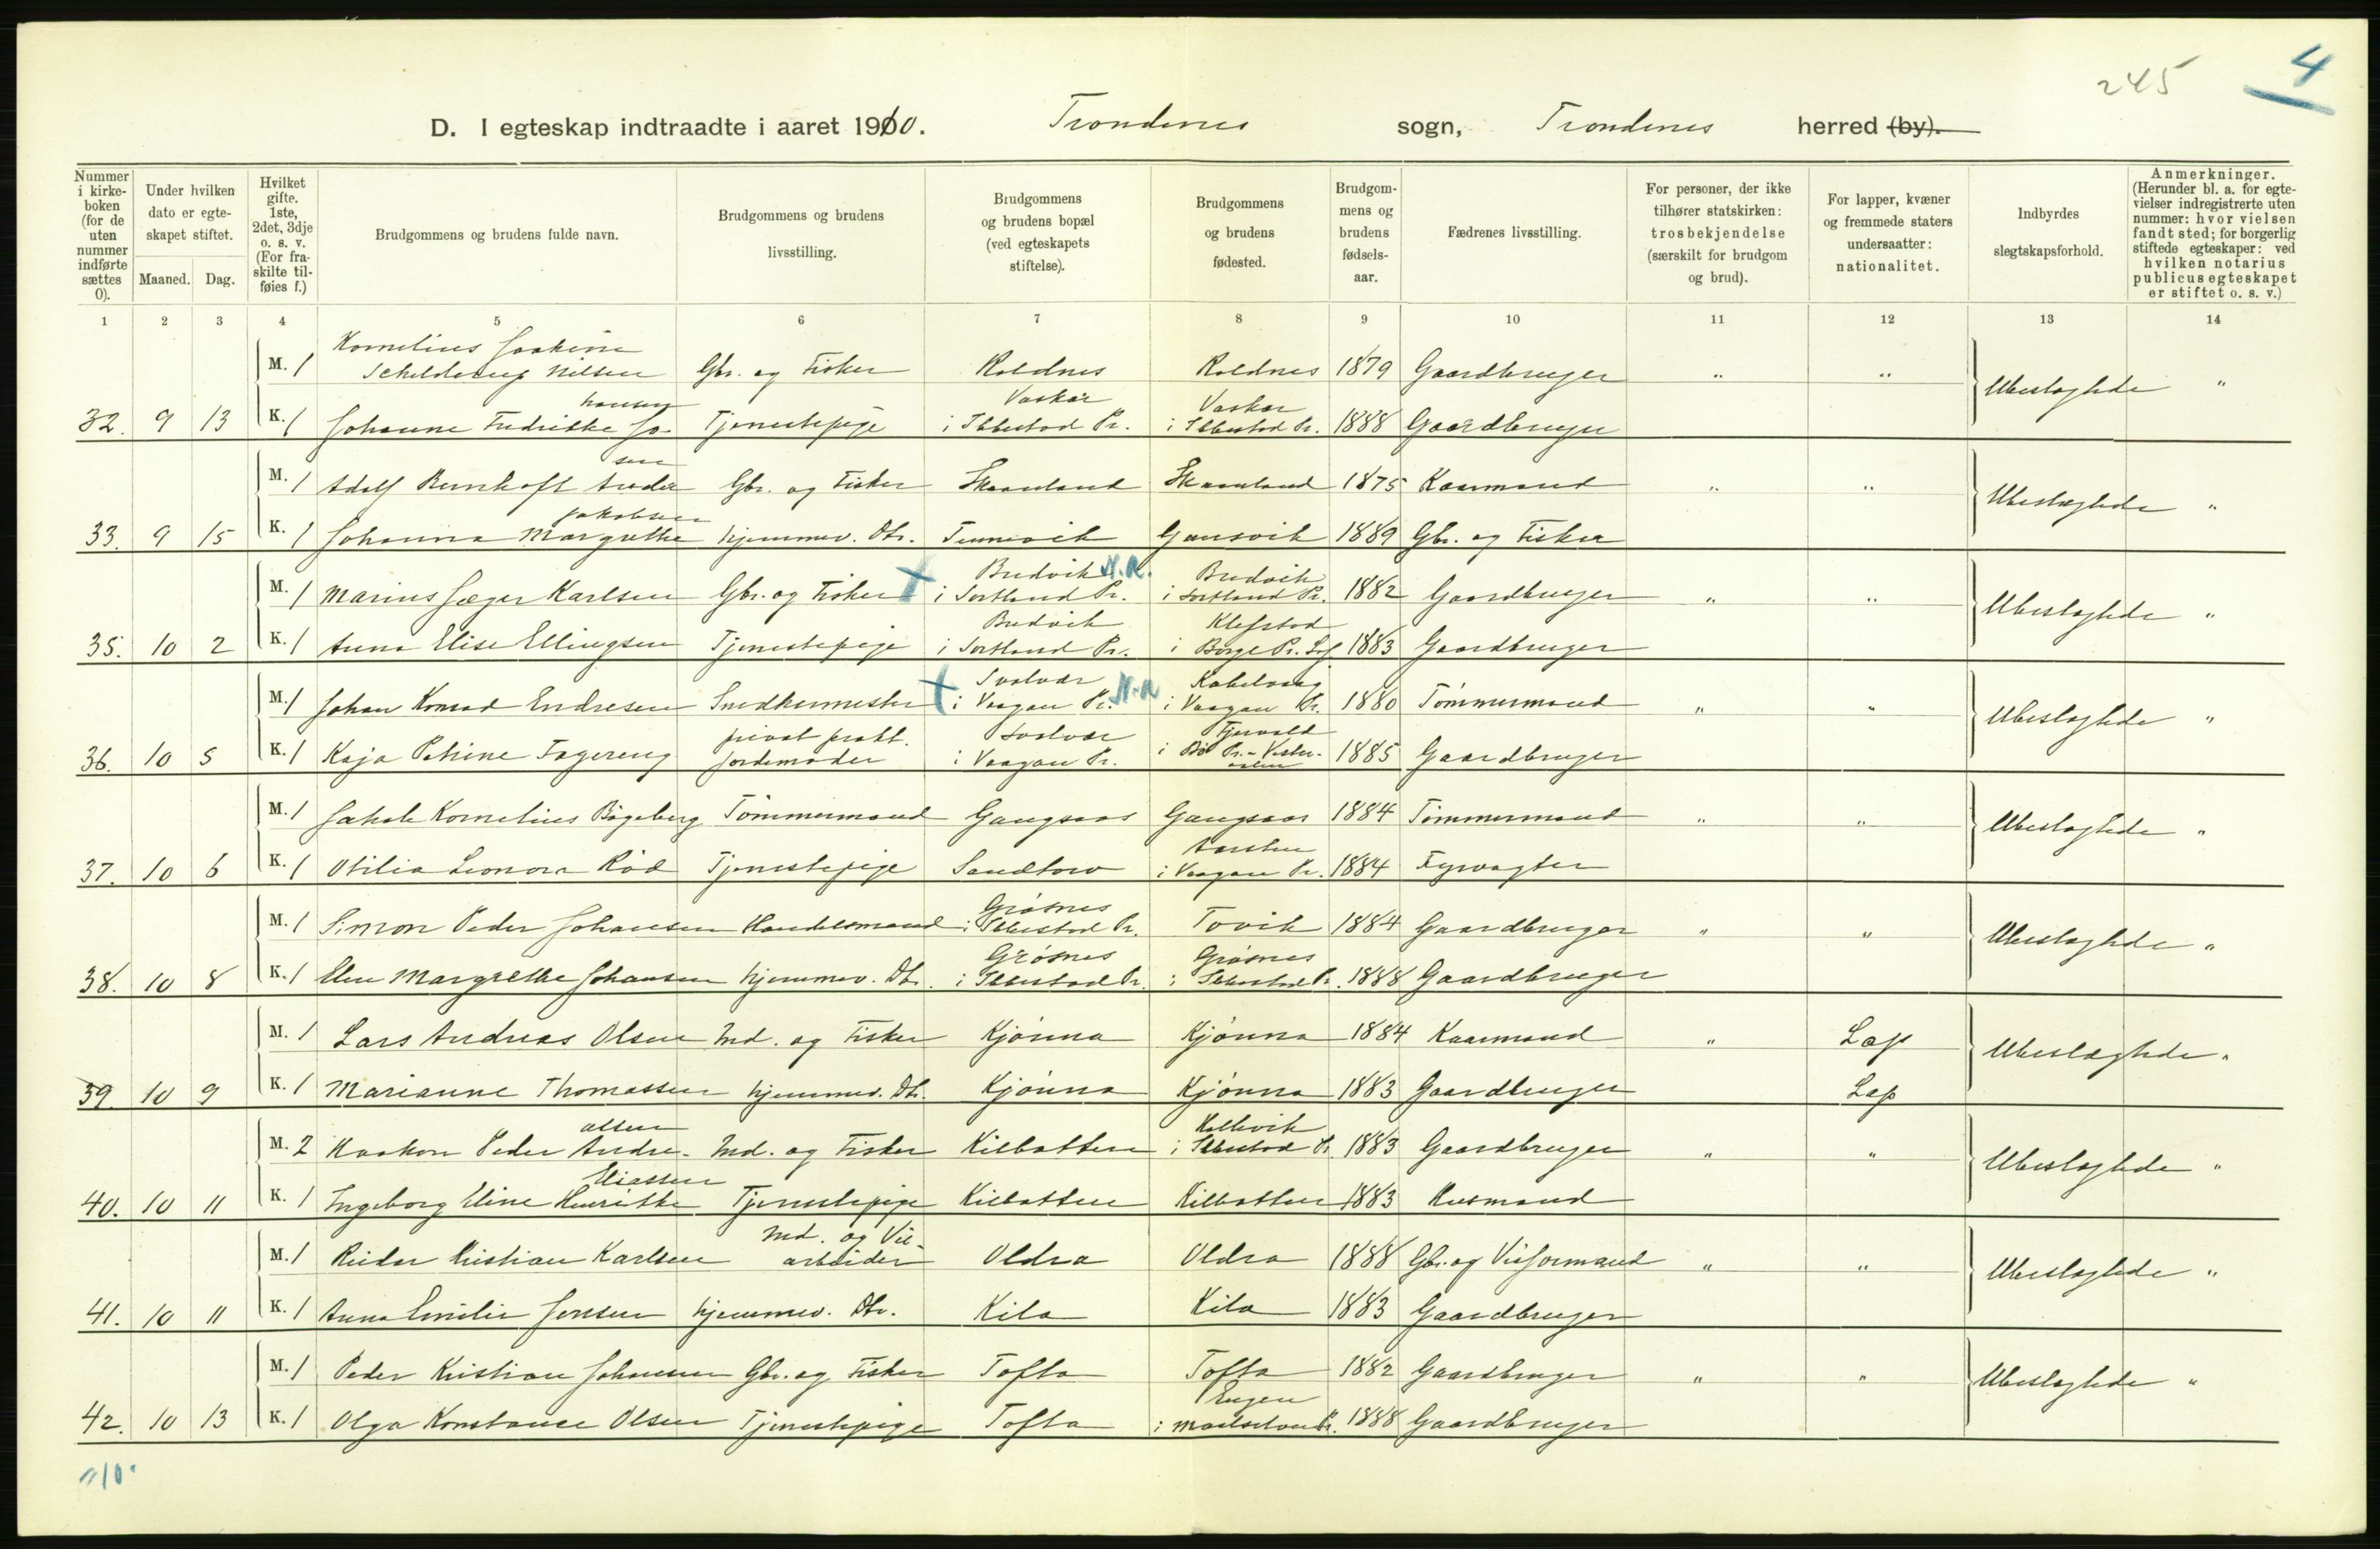 245
4
D. I egteskap indtraadte i aaret 1910. Trondenes sogn, Trondenes herred (by).
Nummer i kirkeboken (for de uten nummer indførte sættes 0).
Under hvilken dato er egteskapet stiftet.
Maaned. Dag.
Hvilket gifte. 1ste, 2det, 3dje o. s. v. (For fraskilte tilføies f.)
Brudgommens og brudens fulde navn.
Brudgommens og brudens livsstilling.
Brudgommens og brudens bopæl (ved egteskapets stiftelse).
Brudgommens og brudens fødested.
Brudgommens og brudens fødselsaar.
Fædrenes livsstilling.
For personer, der ikke tilhører statskirken: trosbekjendelse (særskilt for brudgom og brud).
For lapper, kvæner og fremmede staters undersaatter: nationalitet.
Indbyrdes slegtskapsforhold.
Anmerkninger. (Herunder bl. a. for egtevielser indregistrerte uten nummer: hvor vielsen fandt sted; for borgerlig stiftede egteskaper: ved hvilken notarius publicus egteskapet er stiftet o. s. v.)
1 2 3 4 5 6 7 8 9 10 11 12 13 14
M. 1 Kornelius Joakim Schilderup Nilsen Gbr. og Fisker Roldnes Roldnes 1879 Gaardbruger " " Ubeslægtede "
32. 9 13 K. 1 Johanne Fredrikke Johansen Tjenestepige Vaskar i Ibbestad Pr. Vaskar i Ibbestad Pr. 1888 Gaardbruger
M. 1 Adolf Bernhoft Andersen Gbr. og Fisker Skaanland Skaanland 1875 Kaarmand " " Ubeslægtede "
33. 9 15 K. 1 Johanna Margrethe Jakobsen hjemmev. Dtr. Tennevik Gausvik 1889 Gbr. og Fisker
M. 1 Marius Jæger Karlsen Gbr. og Fisker Bredvik N.R. i Sortland Pr. Bredvik i Sortland Pr. 1882 Gaardbruger " " Ubeslægtede "
35. 10 2 K. 1 Anna Elise Ellingsen Tjenestepige Bredvik i Sortland Pr. Klefstad i Borge Pr. Lof 1883 Gaardbruger
M. 1 Johan Konrad Endresen Snedkermester Svolvær i Vaagan Pr. N.R Kabelvaag i Vaagan Pr. 1880 Tømmermand " " Ubeslægtede "
36. 10 5 K. 1 Kaja Petrine Fagereng privat prakt. Jordemoder Svolvær i Vaagan Pr. i Bø Pr. - Vesteraalen 1885 Gaardbruger
M. 1 Jakob Kornelius Bogeberg Tømmermand Gangsaas Gangsaas 1884 Tømmermand " " Ubeslægtede "
37. 10 6 K. 1 Otilia Leonora Rød Tjenestepige Sandtorv i Vaagan Pr. 1884 Fyrvagter
M. 1 Simon Peder Johansen Handelsmand Grøsnes i Ibbestad Pr. Tovik 1884 Gaardbruger " " Ubeslægtede "
38. 10 8 K. 1 Elen Margrethe Johansen hjemmev. Dtr. Grøsnes i Ibbestad Pr. Grøsnes i Ibbestad Pr. 1888 Gaardbruger
M. 1 Lars Andreas Olsen Ind. og Fisker Kjønna Kjønna 1884 Kaarmand " Lap Ubeslægtede "
39. 10 9 K. 1 Marianne Thomassen hjemmev. Dtr. Kjønna Kjønna 1883 Gaardbruger Lap
M. 2 Haakon Peder Andreassen Ind. og Fisker Kilbotten i Ibbestad Pr. 1883 Gaardbruger " " Ubeslægtede "
40. 10 11 K. 1 Ingeborg Eline Henrikke Eliassen Tjenestepige Kilbotten Kilbotten 1883 Husmand
M. 1 Reidar Kristian Karlsen Ind. og Vei-arbeider Oldra Oldra 1888 Gbr. og Veiformand " " Ubeslægtede "
41. 10 11 K. 1 Anna Emilie Jensen hjemmev. Dtr. Kila Kila 1883 Gaardbruger
M. 1 Peder Kristian Johansen Gbr. og Fisker Tofta Tofta 1882 Gaardbruger " " Ubeslægtede "
42. 10 13 K. 1 Olga Konstance Olsen Tjenestepige Tofta Engen i Maalselven Pr. 1888 Gaardbruger
"10"